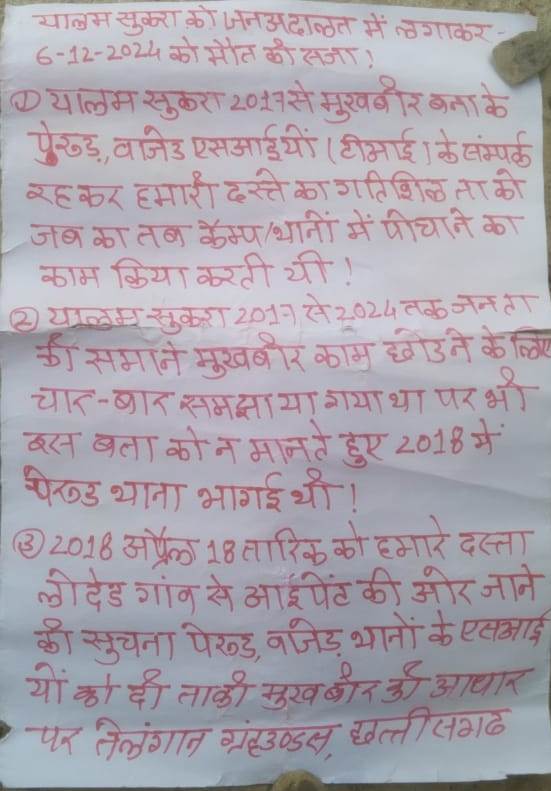 यालम सुकरा को जनअदालत में लगाकर-
6-12-2024 को मौत की सजा!
① यालम सुकरा 2017से मुखबीर बना के
पेरूड, वाजेड एसआईयों (टीमाई) के संम्पर्क
रहकर हमारी दस्ते का गतिशिल ता को
जब का तब कैम्प/थानों में पीचाने का
काम किया करती थी!
② यालम सुकरा 2017 से 2024 तक जनता
की समाने मुखबीर काम छोडने के लिए
चार-बार समझा या गया था पर भी
इस बता को न मानते हुए 2018 में
पेरूड थाना भागई थी!
③ 2018 अप्रैल 18 तारिक को हमारे दस्ता
लोदेड गांव से आईपेंट की ओर जाने
की सुचना पेरूड, वाजेड़ थानों के एसआई
यों को दी ताकी मुखबीर की आधार
पर तेलंगान ग्रंहउण्डस, छत्तीसगढ